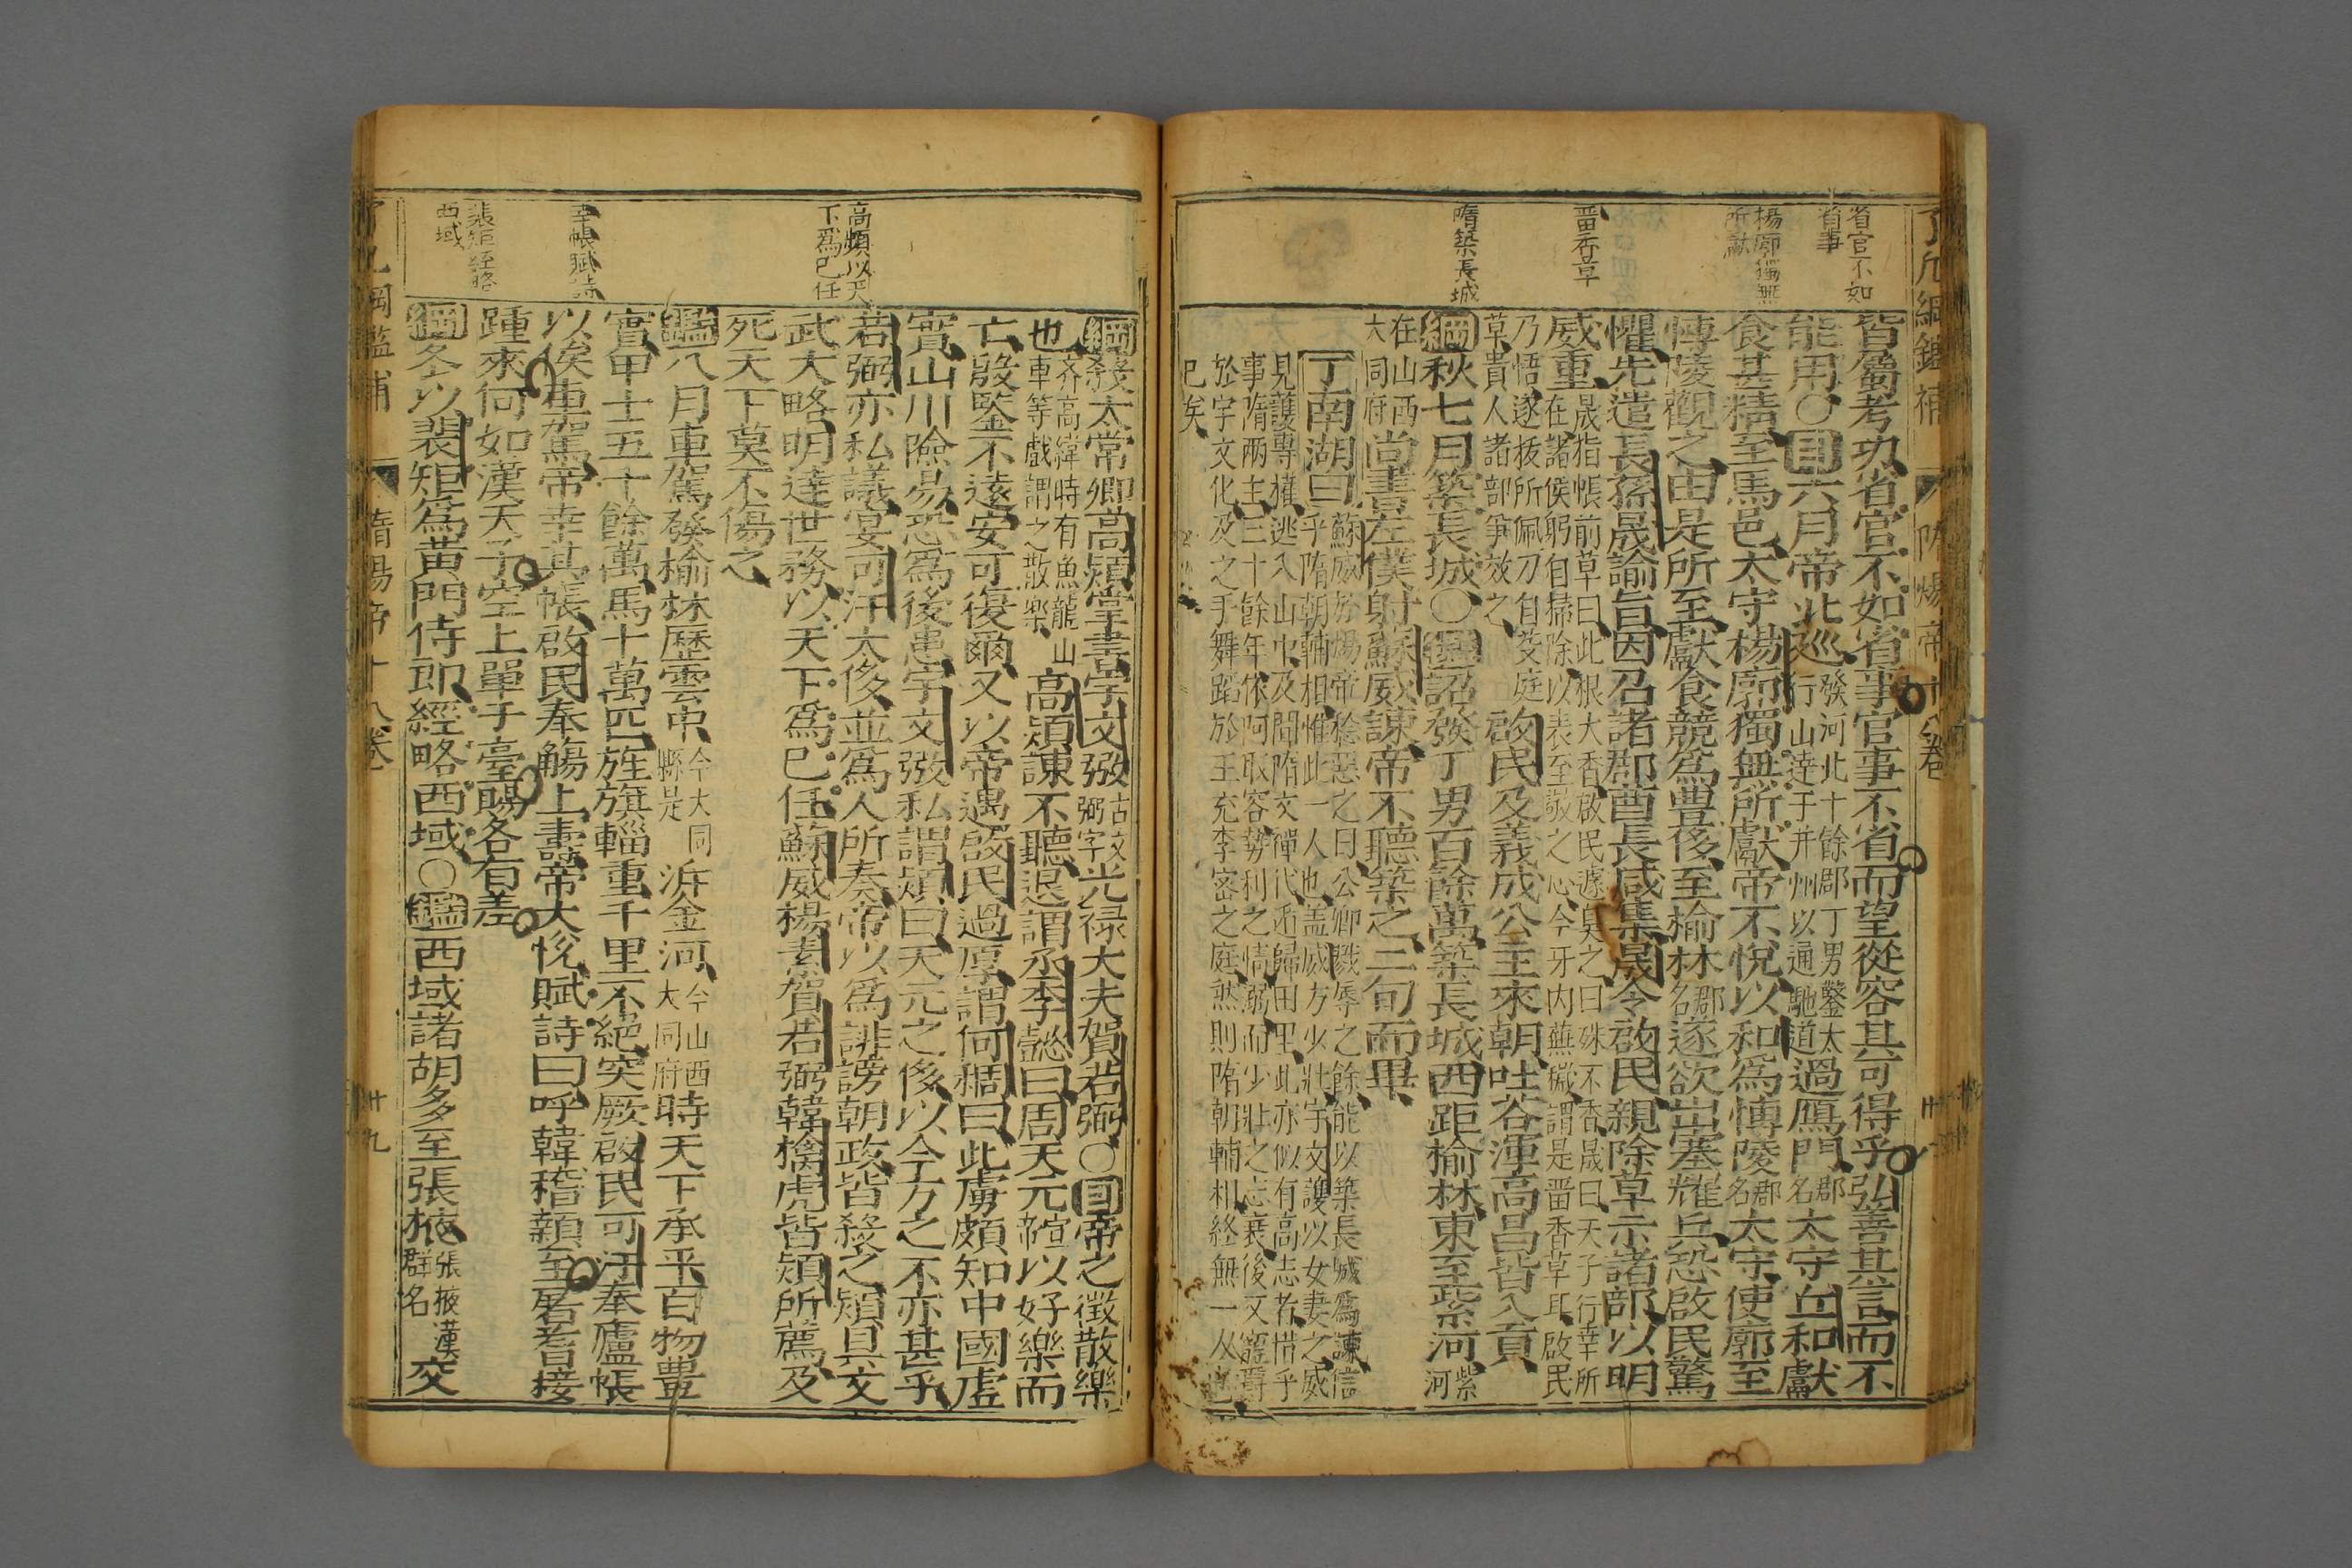 了凡綱鑑補
隋煬帝十八卷
省官不如
省事
楊廓獨無
所獻
畱香草
隋築長城
皆屬考功省官不如省事官事不省而望從容其可得乎弘善其言而不
能用○目六月帝北巡發河北十餘郡丁男鑿太
行山達于并州以通馳道過鴈門郡
名太守丘和獻
食甚精至馬邑太守楊廓獨無所獻帝不悅以和爲愽陵郡
名太守使廓至
愽陵觀之由是所至獻食競爲豊侈至榆林郡
名遂欲出塞耀兵恐啟民驚
懼先遣長孫晟諭旨因召諸郡酋長咸集晟令啟民親除草示諸部以明
威重晟指帳前草曰此根大香啟民遽臭之曰殊不香晟曰天子行幸所
在諸侯躬自掃除以表至敬之心今牙內蕪穢謂是畱香草耳啟民
乃悟遂拔所佩刀自芟庭
草貴人諸部爭效之啟民及義成公主來朝吐谷渾高昌皆入貢
綱秋七月築長城○鑑詔發丁男百餘萬築長城西距榆林東至紫河紫
河
在山西
大同府尚書左僕射蘇威諫帝不聽築之二旬而畢
丁南湖曰蘇威於煬帝稔惡之日公卿戮辱之餘能以築長城爲諫信
乎隋朝輔相惟此一人也盖威方少壯宇文護以女妻之威
見護專權逃入山中及聞隋文禪代迯歸田里此亦似有高志者惜乎
事隋兩主三十餘年依阿取容勢利之情溺而少壯之志衰後又寵爵
於宇文化及之手舞蹈於王充李密之庭然則隋朝輔相終無一人也
已矣
高熲以天
下爲己任
至帳賦詩
裴矩經略
西域
綱殺太常卿高熲尚書宇文㢸古文
弼字光祿大夫賀若弼○目帝之徵散樂
也齐高緯時有魚龍山
車等戲謂之散樂高熲諫不聽退謂丞李懿曰周天元帝諠以好樂而
亡殷鑒不遠安可復爾又以帝遇啟民過厚謂何稠曰此虜頗知中國虛
實山川險易恐爲後患宇文㢸私謂熲曰天元之侈以今方之不亦甚乎
若弼亦私議宴可汗太侈並爲人所奏帝以爲誹謗朝政皆殺之熲具文
武大略明達世務以天下爲己任蘇威楊素賀若弼韓擒虎皆熲所薦及
死天下莫不傷之
鑑八月車駕發榆林歷雲中今大同
縣是泝金河今山西
大同府時天下承平百物豊
實甲士五十餘萬馬十萬匹旌旗輜重千里不絕突厥啟民可汗奉廬帳
以俟車駕帝幸其帳啟民奉觴上壽帝大悅賦詩曰呼韓稽顙至屠耆接
踵來何如漢天子空上單于臺賜各有差
綱冬以裴矩爲黃門侍郎經略西域○鑑西域諸胡多至張掖張掖漢
群名交
了凡綱鑑補
隋煬帝十八卷
卄九